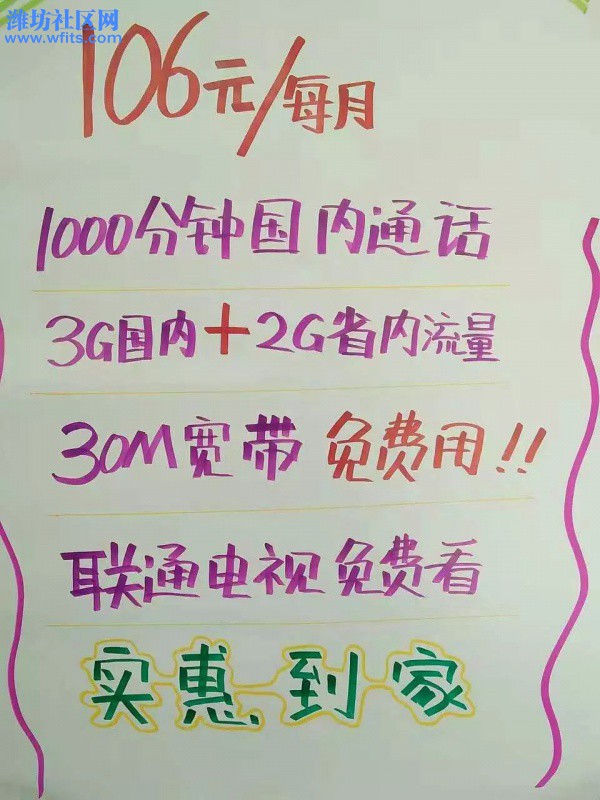 潍坊社区网
www.wfits.com
106元/每月
1000分钟国内通话
3G国内+2G省内流量
30M宽带 免费用!!
联通电视免费看
实惠到家